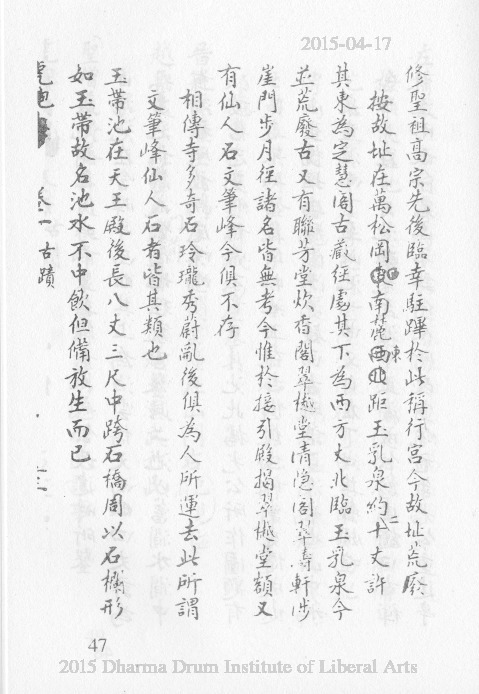 2015-04-17
修聖祖高宗先後臨幸駐蹕於此稱行宮今故址荒廢
按故址在萬松岡南麓東距玉乳泉約二十丈許
其東為定慧閣古藏經處其下為西方丈北臨玉乳泉今
並荒廢古又有聯芳堂炊香閣翠樾堂清隱閣翠壽軒涉
崖門步月徑諸名皆無考今惟於接引殿揭翠樾堂額又
有仙人石文筆峰今俱不存
相傳寺多奇石玲瓏秀蔚亂後俱為人所運去此所謂
文筆峰仙人石者皆其類也
玉帶池在天王殿後長八丈三尺中跨石橋周以石欄形
如玉帶故名池水不中飲但備放生而已
虎跑 卷一 古蹟
47
2015 Dharma Drum Institute of Liberal Arts